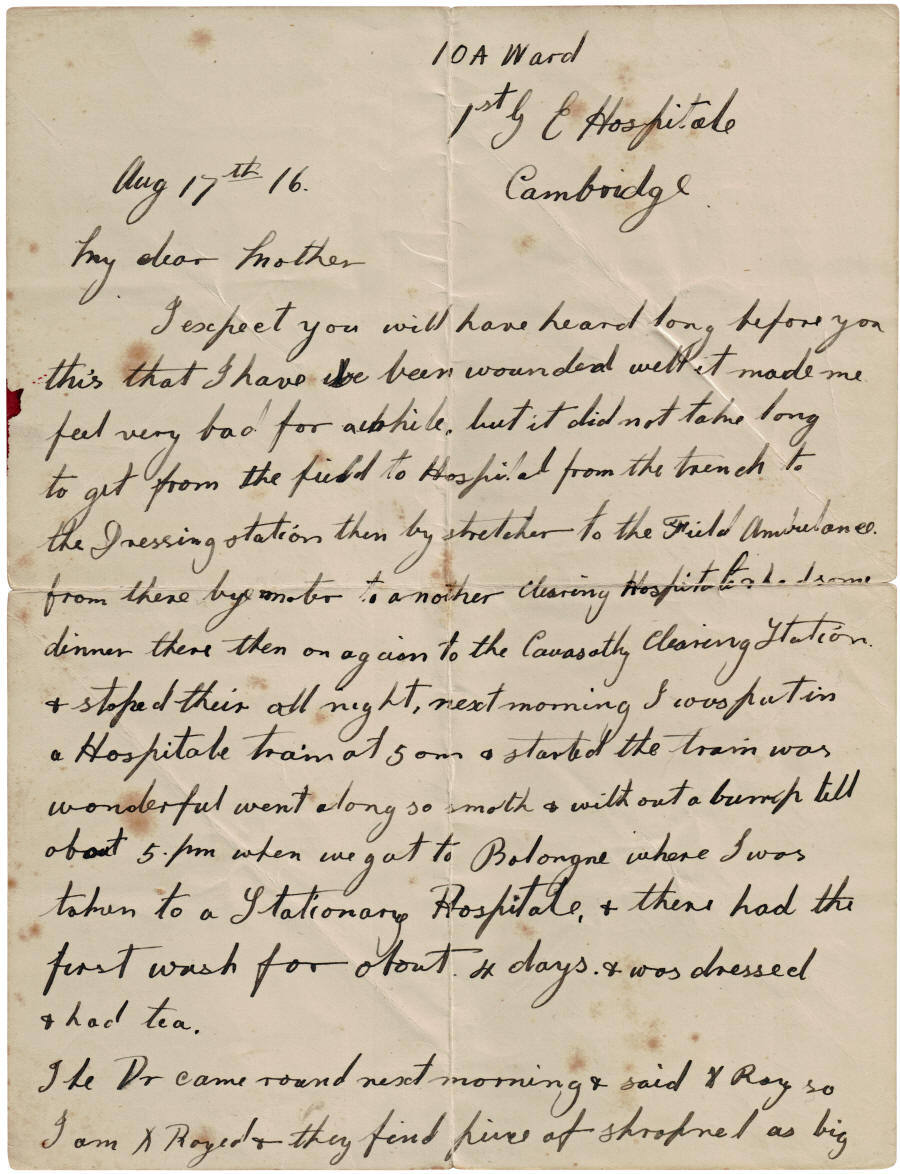 10A Ward
1st G E Hospitale
Cambridge.
Aug 17th 16.
My dear Mother
I expect you will have heard long before you
this that I have been wounded well it made me
feel very bad for awhile, but it did not take long
to get from the field to Hospital from the trench to
the Dressing station then by stretcher to the Field Ambulance.
from there by motor to another Clearing Hospitale & had some
dinner there then on again to the Cavasatly Clearing Station.
& stoped their all night, next morning I was put in
a Hospitale train at 5 am & started the train was
wonderful went along so smoth & with out a bump till
about 5. pm when we got to Bolongne where I was
taken to a Stationary Hospitale, & there had the
first wash for about 4 days. & was dressed
& had tea.
The Dr came round next morning & said X Ray so
I am X Rayed & they find piece of shrapnel as big